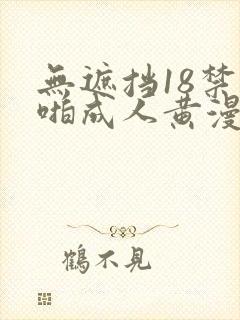 無遮挡18禁
啪成人黄漫
鶴不見